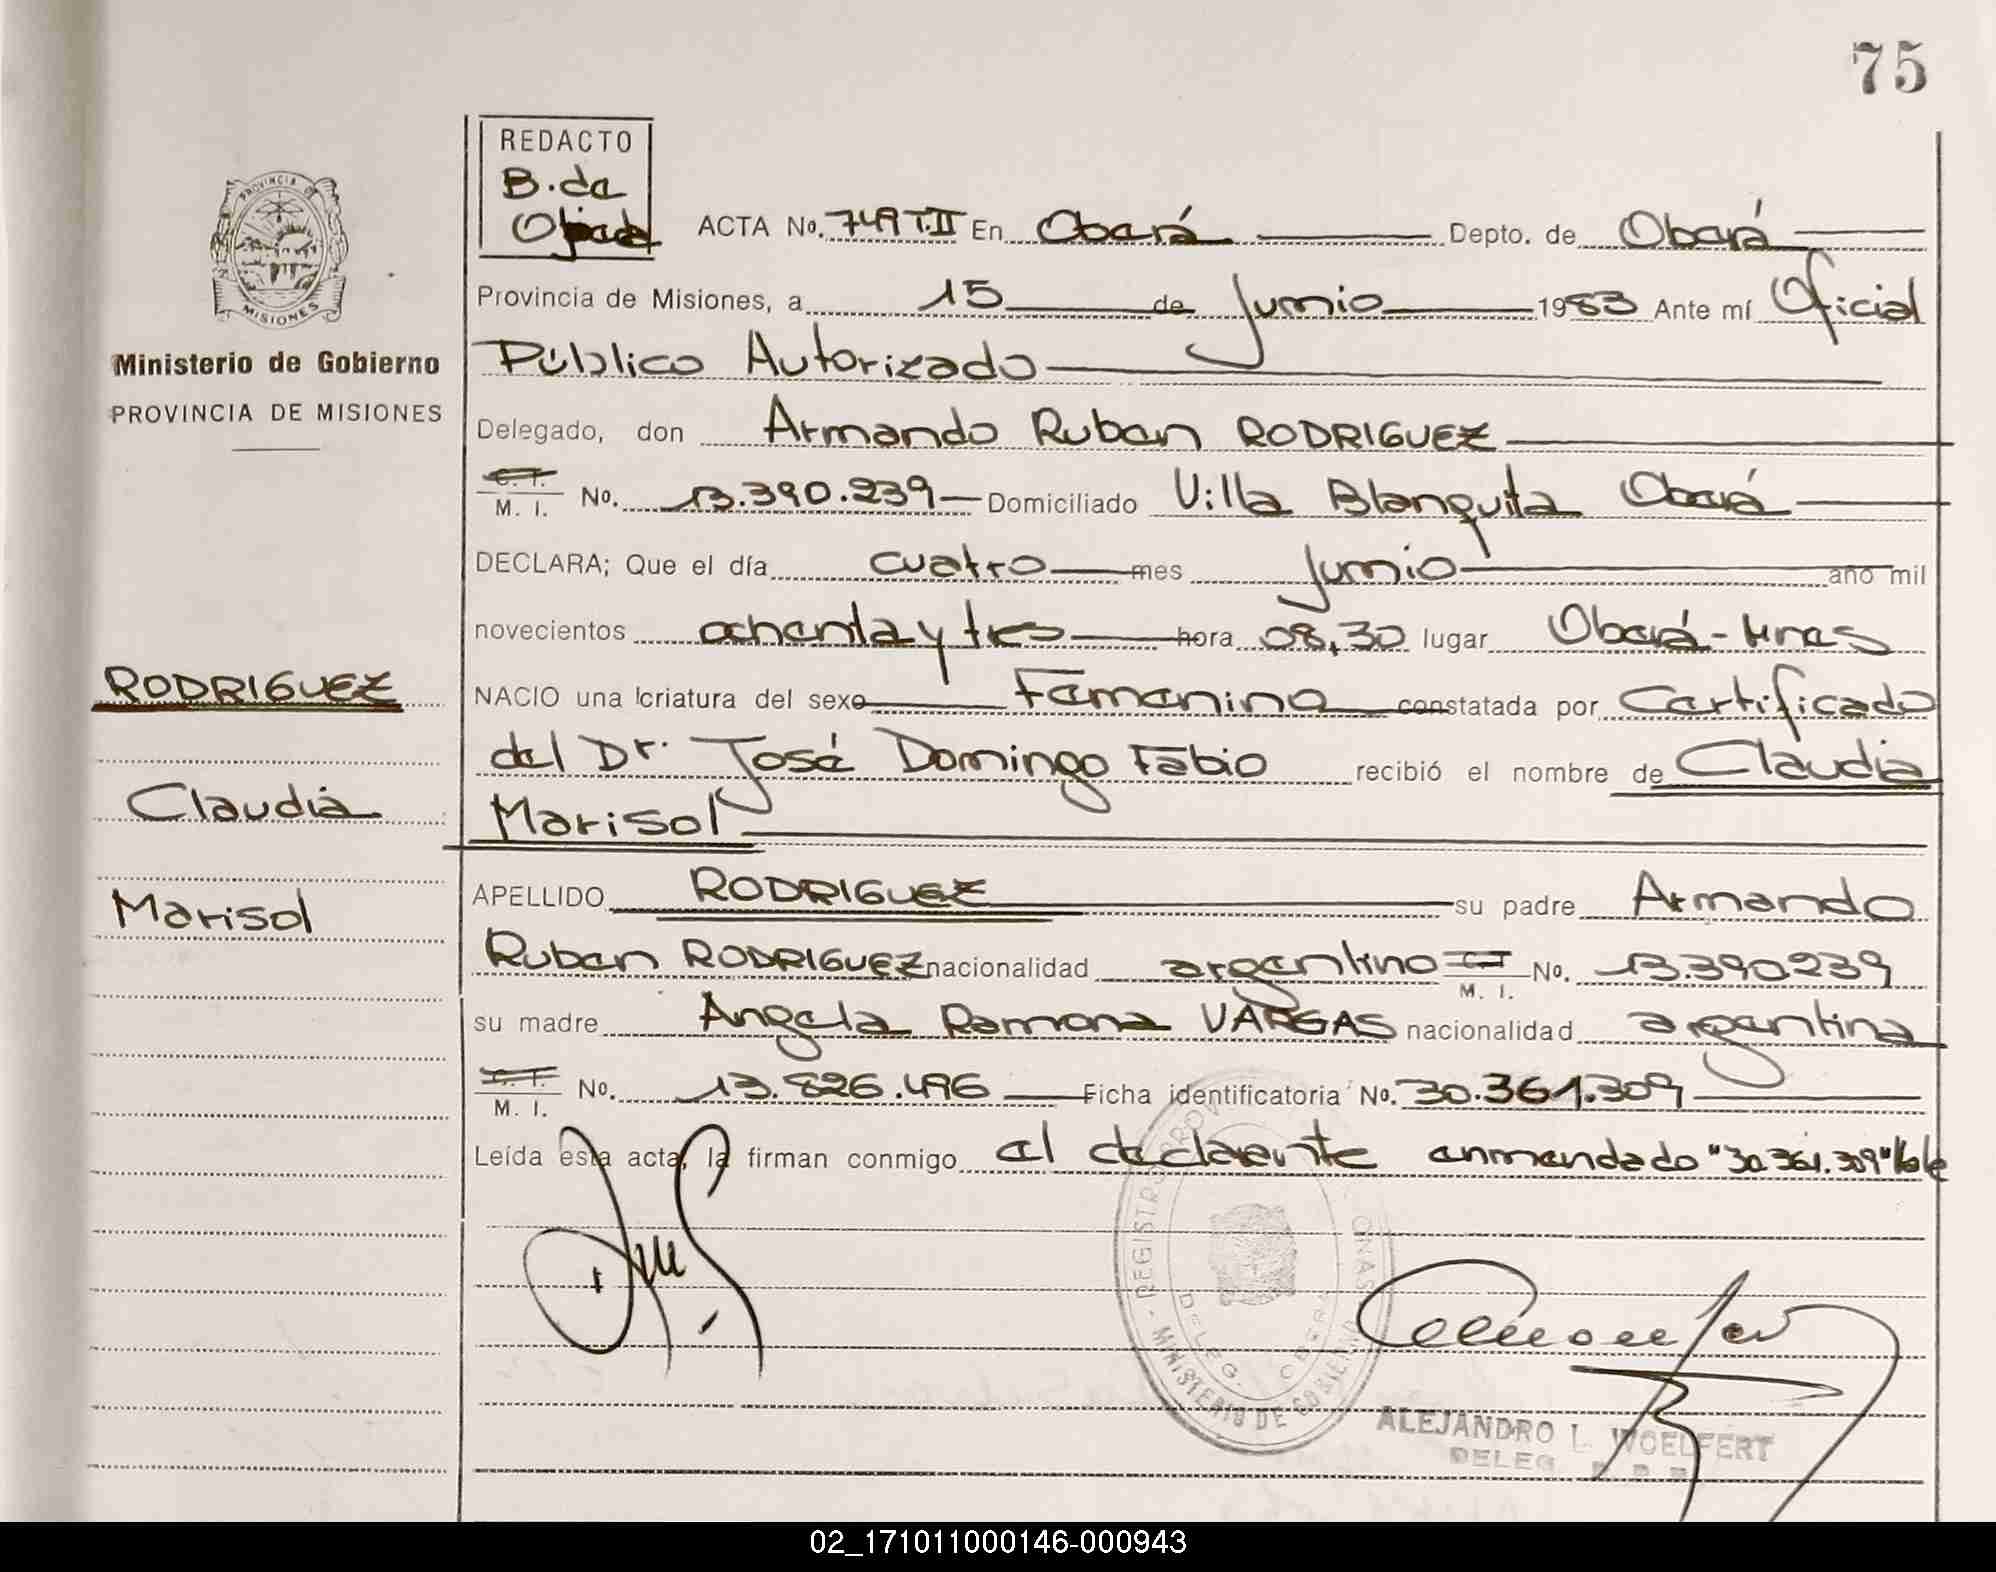 75
REDACTO
B. de
PROVINCIA DE
MISIONES
Ministerio de Gobierno
PROVINCIA DE MISIONES
ACTA No. 749 T.II En Oberá Depto. de Oberá
Provincia de Misiones, a 15 de Junio 1983 Ante mí Oficial
Público Autorizado
Delegado, don Armando Ruben RODRIGUEZ
C. I.
M. I. No. 13.390.239 Domiciliado Villa Blanquita Oberá
DECLARA; Que el día cuatro mes Junio año mil
novecientos ochenta y tres hora 08,30 lugar Oberá-Mnes
RODRIGUEZ
Claudia
Marisol
NACIO una criatura del sexo Femenino constatada por Certificado
del Dr. José Domingo Fabio recibió el nombre de Claudia
Marisol
APELLIDO RODRIGUEZ su padre Armando
Ruben RODRIGUEZ nacionalidad argentino C I
M. I. No. 13.390239
su madre Angela Ramona VARGAS nacionalidad argentina
C. I.
M. I. No. 13.826.496 Ficha identificatoria No. 30.361.309
Leída esta acta, la firman conmigo el declarente enmendado "30.361.309" Vale
REGISTRO PROV
ONAS
DELEG. OBERA
MINISTERIO DE GOBIERNO
ALEJANDRO L. WOELFERT
DELEG.
02_171011000146-000943